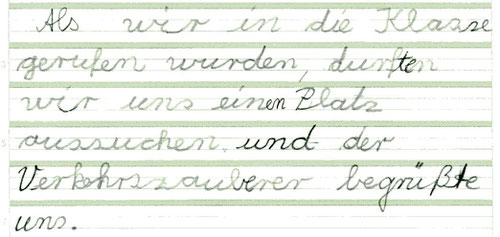 Als wir in die Klasse
gerufen wurden, durften
wir uns einen Platz
aussuchen. und der
Verkehrszauberer begrüßte
uns.